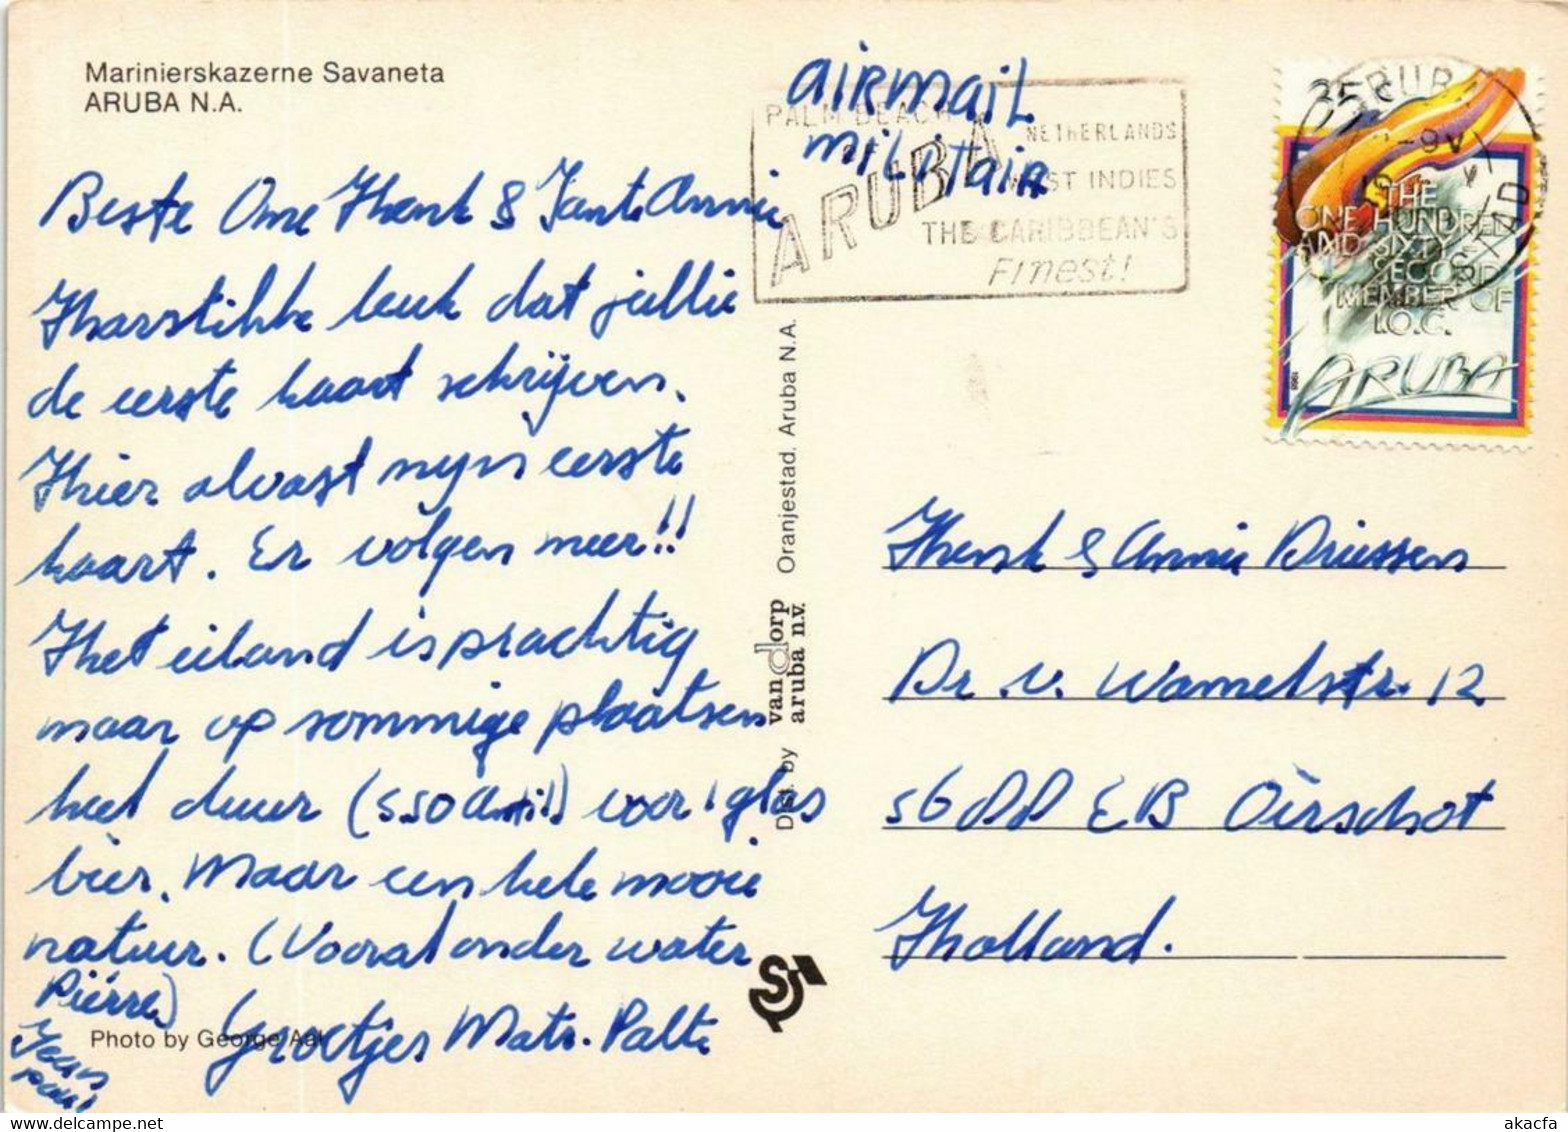 Marinierskazerne Savaneta
ARUBA N.A.
airmail
militair
PALM BEACH
ARUBA
NETHERLANDS
WEST INDIES
THE CARIBBEAN'S
Finest!
35 c
THE
ONE HUNDRED
AND SIXTY
SECOND
MEMBER OF
I.O.C.
ARUBA
1988
Beste Ome Henk & Tante Annie
Harstikke leuk dat jullie
de eerste kaart schrijven.
Hier alvast mijn eerste
kaart. Er volgen meer!!
Het eiland is prachtig
maar op sommige plaatsen
heel duur (550 Antil) voor 1 glas
bier. Maar een hele mooie
natuur. (Vooral onder water
Piérre)
Groetjes Matr.
Jean
Paul
Photo by George
Dist. by van dorp aruba n.v. Oranjestad. Aruba N.A.
Henk & Annie Driessen
Dr. v. Wamelstr. 12
5688 EB Oirschot
Holland.
akacfa
delcampe.net